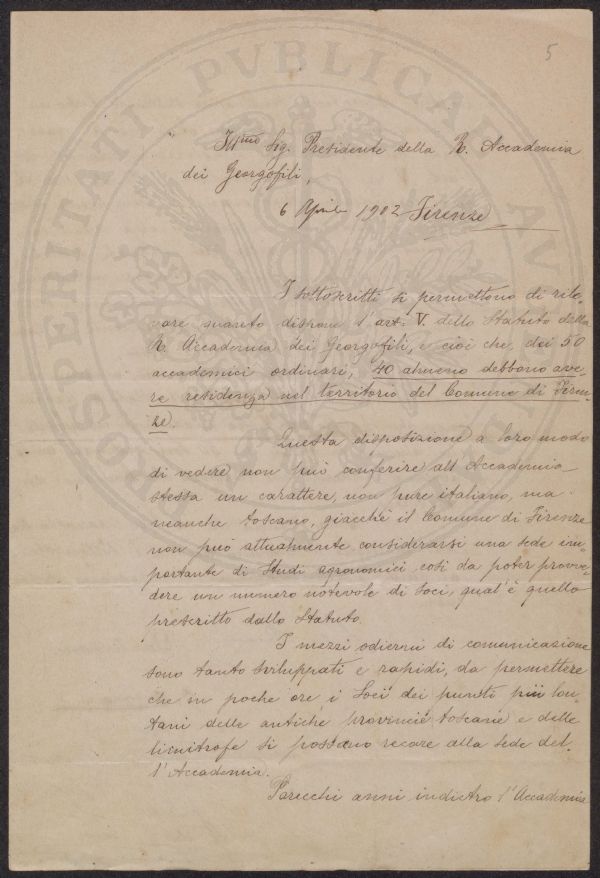 5
Ill.mo Sig. Presidente della R. Accademia
dei Georgofili,
6 Aprile 1902 Firenze
I sottoscritti si permettono di rile-
vare quanto dispone l'art. V. dello Statuto della
R. Accademia dei Georgofili, e cioè che, dei 50
accademici ordinari, 40 almeno debbono ave-
re residenza nel territorio del Comune di Firen-
ze.
Questa disposizione a loro modo
di vedere non può conferire all'Accademia
stessa un carattere, non pure italiano, ma
neanche toscano, giacchè il Comune di Firenze
non può attualmente considerarsi una sede im-
portante di Studi agronomici così da poter provve-
dere un numero notevole di soci, qual'è quello
prescritto dallo Statuto.
I mezzi odierni di comunicazione
sono tanto sviluppati e rapidi, da permettere
che in poche ore, i Soci dei punti più lon-
tani delle antiche provincie toscane e delle
limitrofe si possano recare alla sede del-
l'Accademia.
Parecchi anni indietro l'Accademia
PROSPERITATI PVBLICAE AV